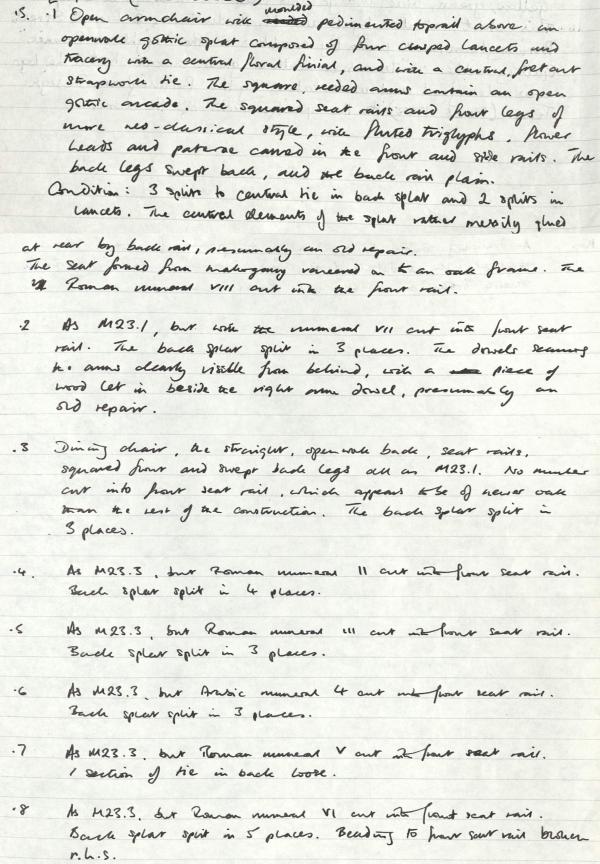 moulded
.1 Open armchair with pedimented toprail above an
openwork gothic splat composed of four cusped lancets and
tracery with a central floral finial, and with a central, fret cut
strapwork tie. The square, reeded arms contain an open
gothic arcade. The squared seat rails and front legs of
more neo-classical style, with fluted triglyphs, flower
heads and paterae carved in the front and side rails. The
back legs swept back, and the back rail plain.
Condition: 3 splits to central tie in back splat and 2 splits in
lancets. The central elements of the splat rather messily glued
at rear by back rail, presumably an old repair.
The seat formed from mahogany veneered on to an oak frame. The
Roman numeral VIII cut into the front rail.
.2 As M23.1, but with the numeral VII cut into front seat
rail. The back splat split in 3 places. The dowels securing
the arms clearly visible from behind, with a piece of
wood let in beside the right arm dowel, presumably an
old repair.
.3 Dining chair, the straight, openwork back, seat rails,
squared front and swept back legs all as M23.1. No number
cut into front seat rail, which appears to be of newer oak
than the rest of the construction. The back splat split in
3 places.
.4. As M23.3, but Roman numeral II cut into front seat rail.
Back splat split in 4 places.
.5 As M23.3, but Roman numeral III cut into front seat rail.
Back splat split in 3 places.
.6 As M23.3, but Arabic numeral 4 cut into front seat rail.
Back splat split in 3 places.
.7 As M23.3, but Roman numeral V cut into front seat rail.
1 section of tie in back loose.
.8 As M23.3, but Roman numeral VI cut into front seat rail.
Back splat split in 5 places. Beading to front seat rail broken
r.h.s.